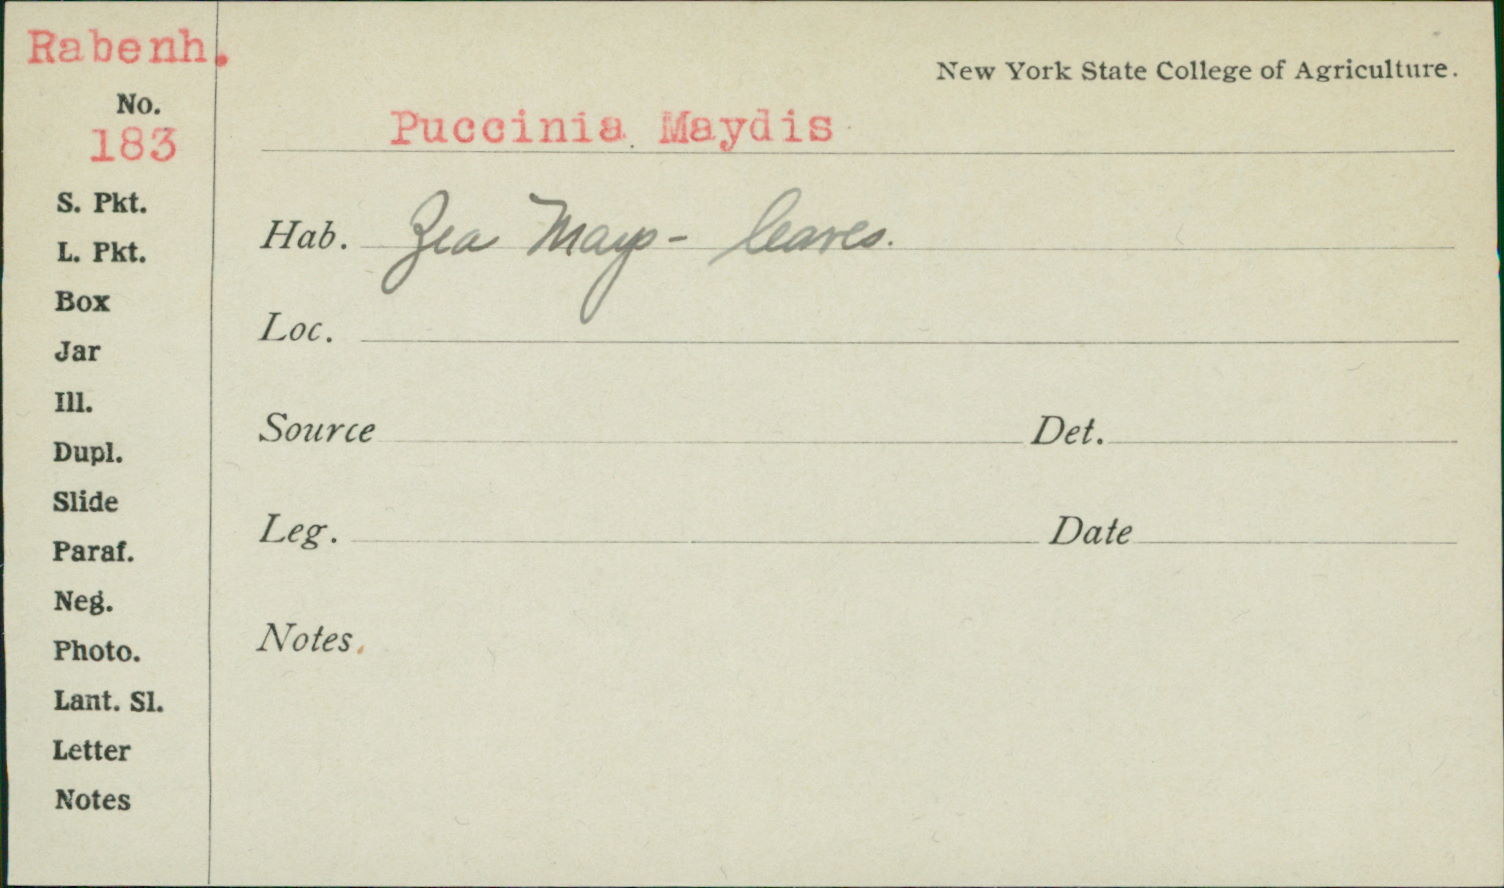 Rabenh.
New York State College of Agriculture.
No.
183
Puccinia Maydis
S. Pkt.
Hab. Zea Mays - leaves.
L. Pkt.
Box
Loc.
Jar
Ill.
Source Det.
Dupl.
Slide
Leg. Date
Paraf.
Neg.
Notes.
Photo.
Lant. Sl.
Letter
Notes